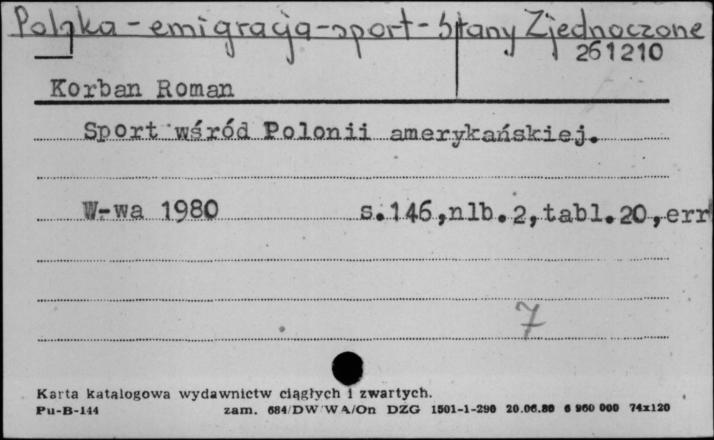 Polska - emigracja - sport - Stany Zjednoczone
261210
Korban Roman
Sport wśród Polonii amerykańskiej.
W-wa 1980 s.146,nlb.2,tabl.20,err
7
Karta katalogowa wydawnictw ciągłych i zwartych.
Pu-B-144 zam. 684/DW WA/On DZG 1501-1-290 20.06.80 6 960 000 74x120